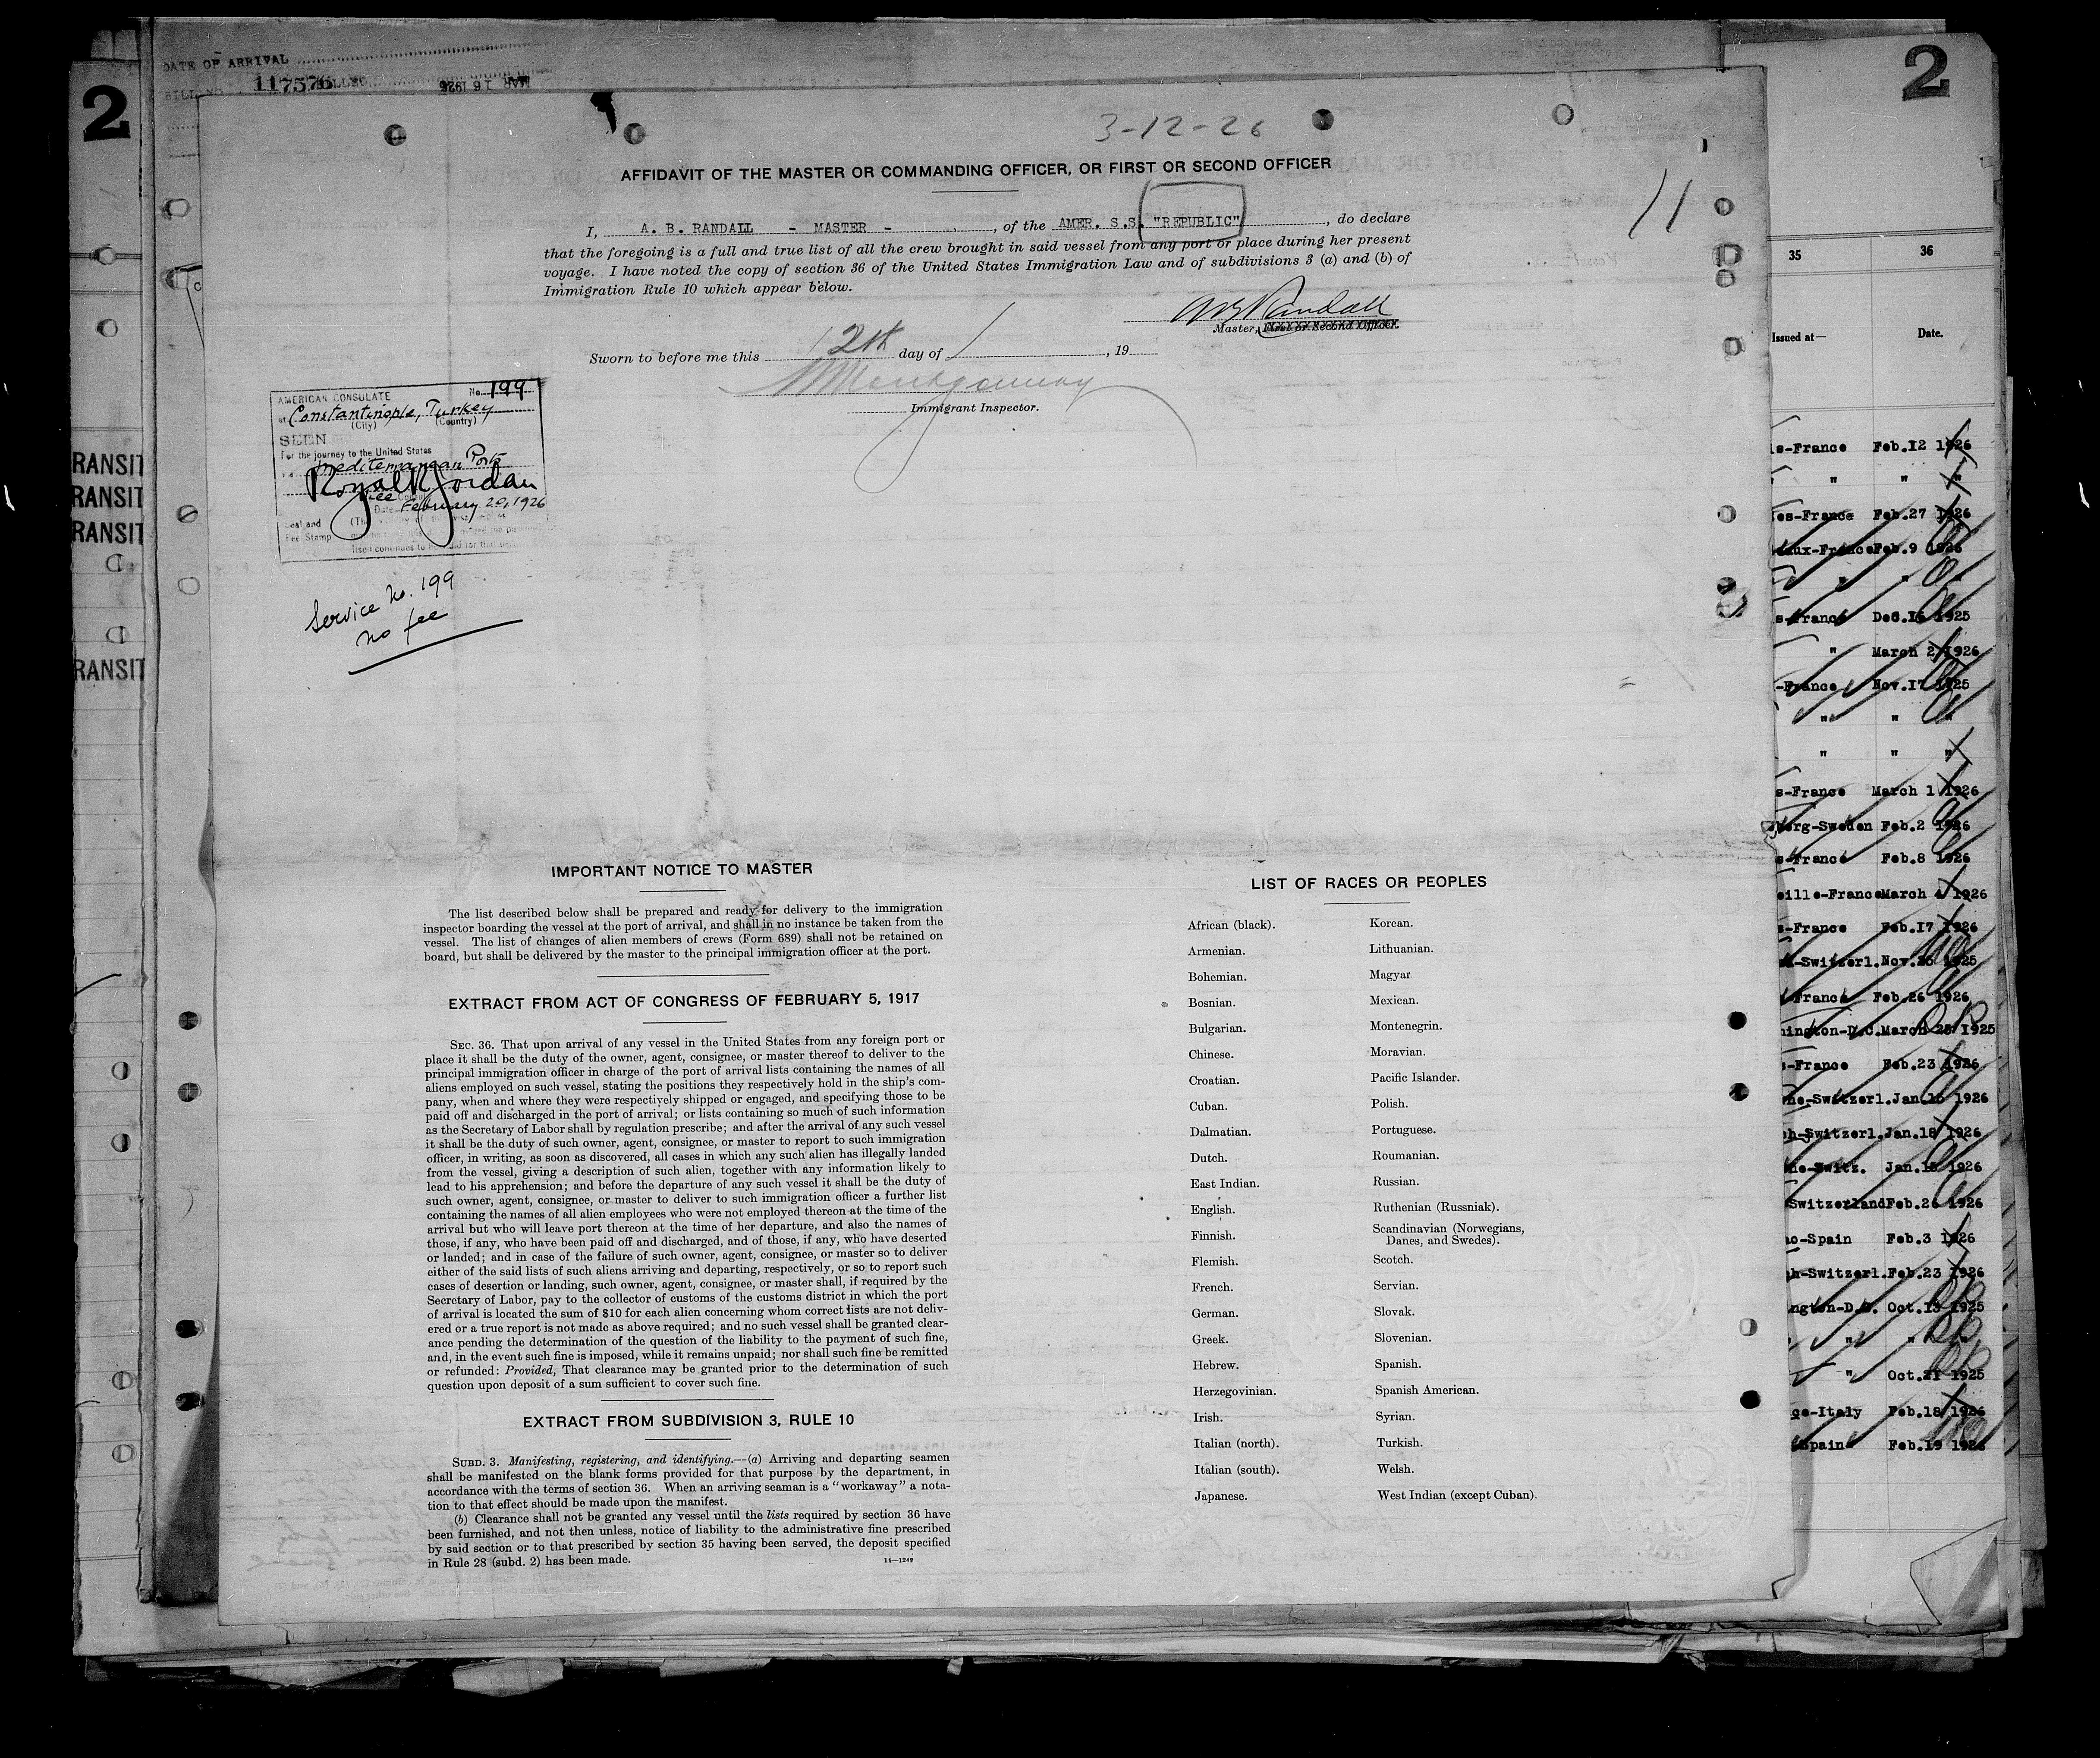 2
DATE OF ARRIVAL
117576
MAR 16 1926
3-12-26
AFFIDAVIT OF THE MASTER OR COMMANDING OFFICER, OR FIRST OR SECOND OFFICER
11
I, A. B. RANDALL - MASTER - , of the AMER. S.S. "REPUBLIC" , do declare
that the foregoing is a full and true list of all the crew brought in said vessel from any port or place during her present
voyage. I have noted the copy of section 36 of the United States Immigration Law and of subdivisions 3 (a) and (b) of
Immigration Rule 10 which appear below.
A B Randall
Master, First or Second Officer.
Sworn to before me this 12th day of , 19
Montgomery
Immigrant Inspector.
AMERICAN CONSULATE No. 199
at Constantinople, Turkey
(City) (Country)
SEEN
For the journey to the United States
Mediterranean Ports
Royal R Jordan
Vice
Date February 20, 1926
Seal and
Fee Stamp
Service No. 199
no fee
IMPORTANT NOTICE TO MASTER
The list described below shall be prepared and ready for delivery to the immigration
inspector boarding the vessel at the port of arrival, and shall in no instance be taken from the
vessel. The list of changes of alien members of crews (Form 689) shall not be retained on
board, but shall be delivered by the master to the principal immigration officer at the port.
EXTRACT FROM ACT OF CONGRESS OF FEBRUARY 5, 1917
SEC. 36. That upon arrival of any vessel in the United States from any foreign port or
place it shall be the duty of the owner, agent, consignee, or master thereof to deliver to the
principal immigration officer in charge of the port of arrival lists containing the names of all
aliens employed on such vessel, stating the positions they respectively hold in the ship's com-
pany, when and where they were respectively shipped or engaged, and specifying those to be
paid off and discharged in the port of arrival; or lists containing so much of such information
as the Secretary of Labor shall by regulation prescribe; and after the arrival of any such vessel
it shall be the duty of such owner, agent, consignee, or master to report to such immigration
officer, in writing, as soon as discovered, all cases in which any such alien has illegally landed
from the vessel, giving a description of such alien, together with any information likely to
lead to his apprehension; and before the departure of any such vessel it shall be the duty of
such owner, agent, consignee, or master to deliver to such immigration officer a further list
containing the names of all alien employees who were not employed thereon at the time of the
arrival but who will leave port thereon at the time of her departure, and also the names of
those, if any, who have been paid off and discharged, and of those, if any, who have deserted
or landed; and in case of the failure of such owner, agent, consignee, or master so to deliver
either of the said lists of such aliens arriving and departing, respectively, or so to report such
cases of desertion or landing, such owner, agent, consignee, or master shall, if required by the
Secretary of Labor, pay to the collector of customs of the customs district in which the port
of arrival is located the sum of $10 for each alien concerning whom correct lists are not deliv-
ered or a true report is not made as above required; and no such vessel shall be granted clear-
ance pending the determination of the question of the liability to the payment of such fine,
and, in the event such fine is imposed, while it remains unpaid; nor shall such fine be remitted
or refunded: Provided, That clearance may be granted prior to the determination of such
question upon deposit of a sum sufficient to cover such fine.
EXTRACT FROM SUBDIVISION 3, RULE 10
SUBD. 3. Manifesting, registering, and identifying.—(a) Arriving and departing seamen
shall be manifested on the blank forms provided for that purpose by the department, in
accordance with the terms of section 36. When an arriving seaman is a "workaway" a nota-
tion to that effect should be made upon the manifest.
(b) Clearance shall not be granted any vessel until the lists required by section 36 have
been furnished, and not then unless, notice of liability to the administrative fine prescribed
by said section or to that prescribed by section 35 having been served, the deposit specified
in Rule 28 (subd. 2) has been made.
14—1249
LIST OF RACES OR PEOPLES
African (black).
Armenian.
Bohemian.
Bosnian.
Bulgarian.
Chinese.
Croatian.
Cuban.
Dalmatian.
Dutch.
East Indian.
English.
Finnish.
Flemish.
French.
German.
Greek.
Hebrew.
Herzegovinian.
Irish.
Italian (north).
Italian (south).
Japanese.
Korean.
Lithuanian.
Magyar
Mexican.
Montenegrin.
Moravian.
Pacific Islander.
Polish.
Portuguese.
Roumanian.
Russian.
Ruthenian (Russniak).
Scandinavian (Norwegians,
Danes, and Swedes).
Scotch.
Servian.
Slovak.
Slovenian.
Spanish.
Spanish American.
Syrian.
Turkish.
Welsh.
West Indian (except Cuban).
RANSIT
RANSIT
RANSIT
RANSIT
2
35 36
Issued at— Date.
s-France Feb.12 1926
" " "
es-France Feb.27 1926
aux-France Feb.9 1926
" "
s-France Dec.16 1925
" March 2 1926
-France Nov.17 1925
" " "
" " "
s-France March 1 1926
berg-Sweden Feb.2 1926
s-France Feb.8 1926
eille-France March 4 1926
s-France Feb.17 1926
-Switzerl. Nov.25 1925
France Feb.26 1926
hington-D.C. March 25 1925
-France Feb.23 1926
ne-Switzerl. Jan.15 1926
h-Switzerl. Jan.18 1926
ne-Switz. Jan.15 1926
Switzerland Feb.26 1926
ao-Spain Feb.3 1926
h-Switzerl. Feb.23 1926
ngton-D.C. Oct.13 1925
" " "
" Oct.21 1925
ge-Italy Feb.18 1926
Spain Feb.19 1926